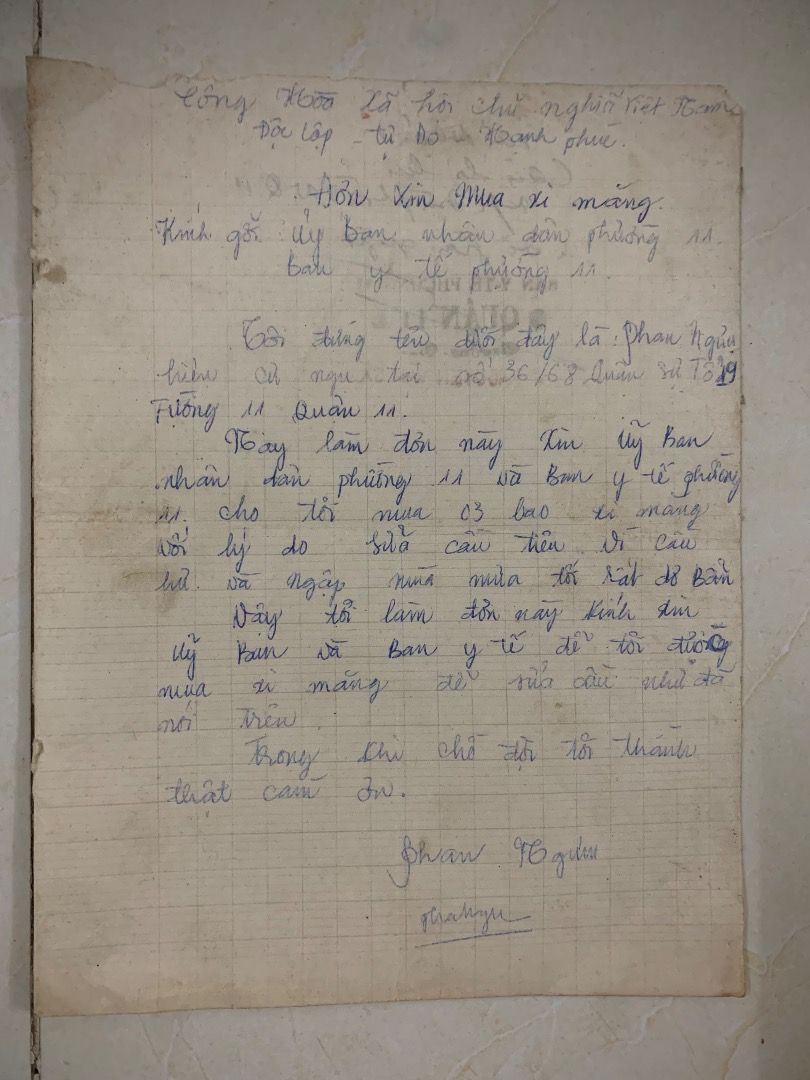 Cộng Hòa Xã hội chủ nghĩã Việt Nam
Độc Lập - tự Do - Hanh phúc.
Đơn Xin Mua xi măng.
Kính gởi Uỷ Ban nhân dân phường 11.
Ban y tế phường 11.
Tôi đứng tên dưới đây là: Phan Ngưu
hiện cư ngụ tại số 36/68 Quân sự Tổ 19
Fường 11 Quận 11.
Nay làm đơn này Xin Uỹ Ban
nhân dân phường 11 và Ban y tế phường
11. cho tôi mua 03 bao xi măng
với lý do sửa cầu tiêu. Vì cầu
hư và ngập nuá mưa tới rất dơ Bẩn
Vậy tôi làm đơn này kính xin
Uỹ Ban và Ban y tế để tôi được
mua xi măng để sửa cầu như đã
nói trên.
Trong khi chờ đợi tôi thành
thật cám ơn.
Phan Ngưu